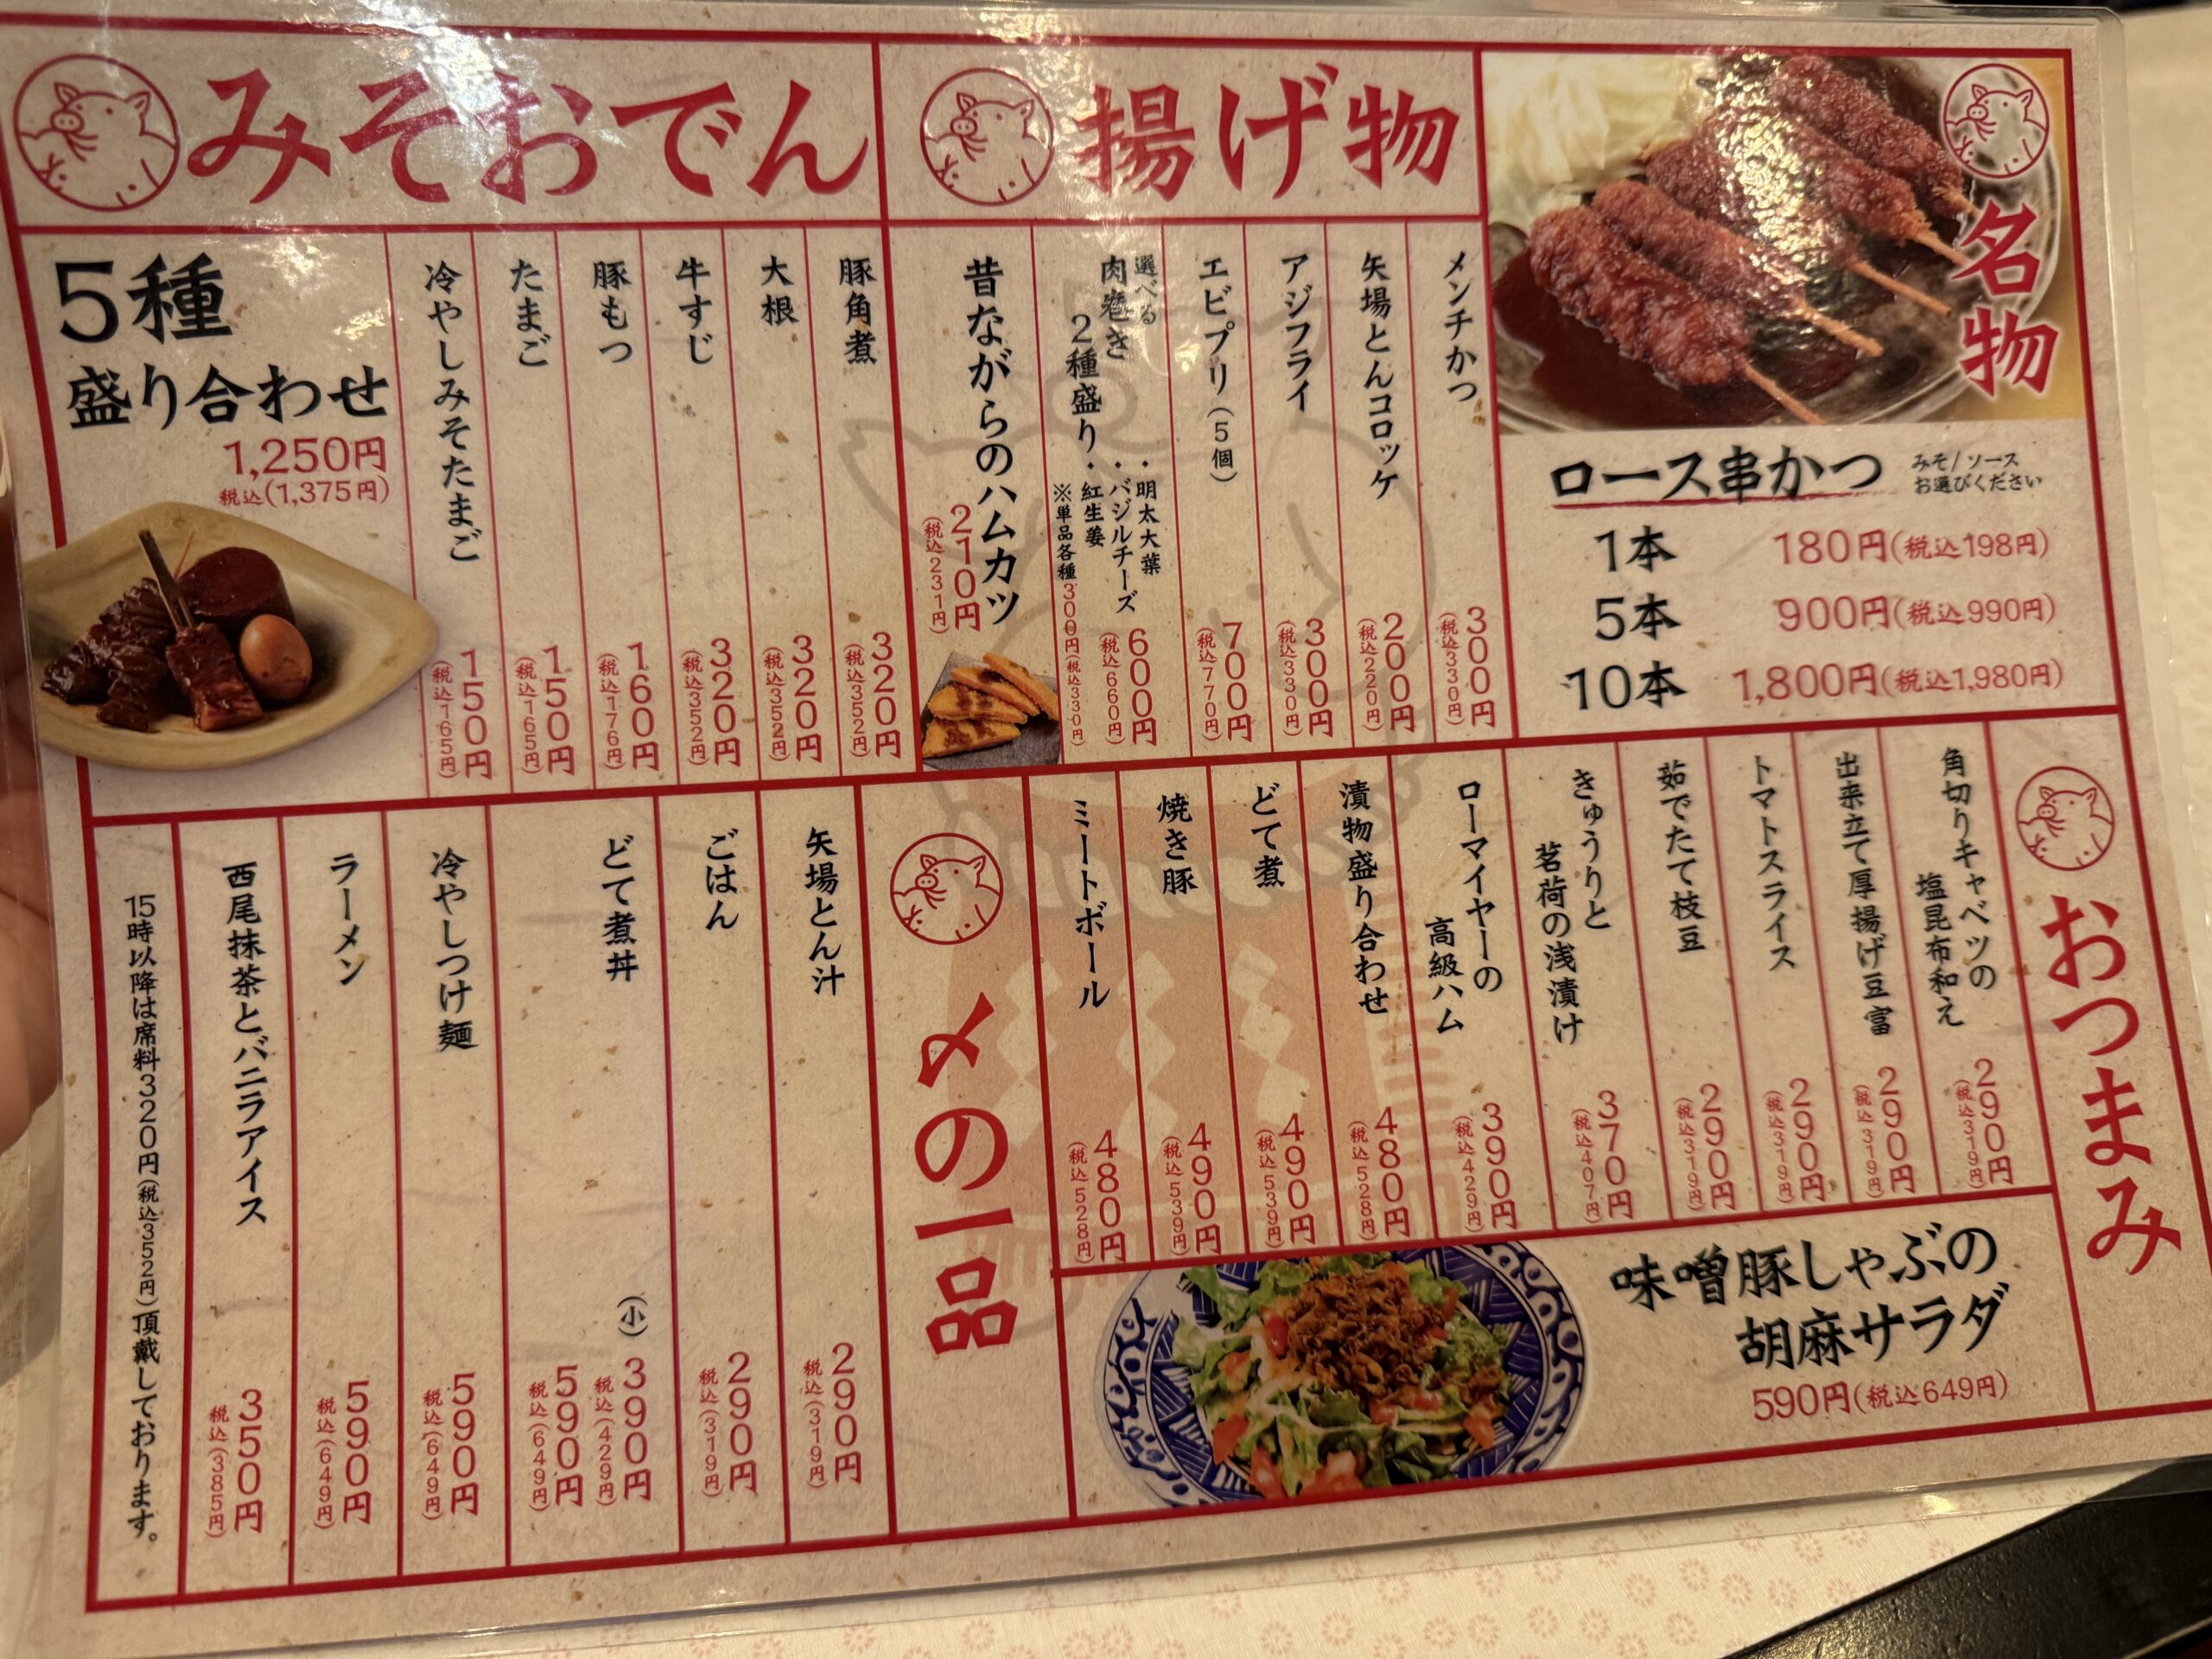 名物
ロース串かつ
みそ/ソース
お選びください
1本 180円(税込198円)
5本 900円(税込990円)
10本 1,800円(税込1,980円)
揚げ物
メンチかつ 300円(税込330円)
矢場とんコロッケ 200円(税込220円)
アジフライ 300円(税込330円)
エビプリ(5個) 700円(税込770円)
選べる
肉巻き
2種盛り
・明太大葉
・バジルチーズ
・紅生姜
600円(税込660円)
※単品各種300円(税込330円)
昔ながらのハムカツ 210円(税込231円)
みそおでん
豚角煮 320円(税込352円)
大根 320円(税込352円)
牛すじ 320円(税込352円)
豚もつ 160円(税込176円)
たまご 150円(税込165円)
冷やしみそたまご 150円(税込165円)
5種
盛り合わせ
1,250円
税込(1,375円)
おつまみ
角切りキャベツの
塩昆布和え
290円(税込319円)
出来立て厚揚げ豆富 290円(税込319円)
トマトスライス 290円(税込319円)
茹でたて枝豆 290円(税込319円)
きゅうりと
茗荷の浅漬け
370円(税込407円)
ローマイヤーの
高級ハム
390円(税込429円)
漬物盛り合わせ 480円(税込528円)
どて煮 490円(税込539円)
焼き豚 490円(税込539円)
ミートボール 480円(税込528円)
味噌豚しゃぶの
胡麻サラダ
590円(税込649円)
〆の一品
矢場とん汁 290円 税込(319円)
ごはん 290円 税込(319円)
どて煮丼
(小) 390円 税込(429円)
590円 税込(649円)
冷やしつけ麺 590円 税込(649円)
ラーメン 590円 税込(649円)
西尾抹茶とバニラアイス 350円 税込(385円)
15時以降は席料320円(税込352円)頂戴しております。